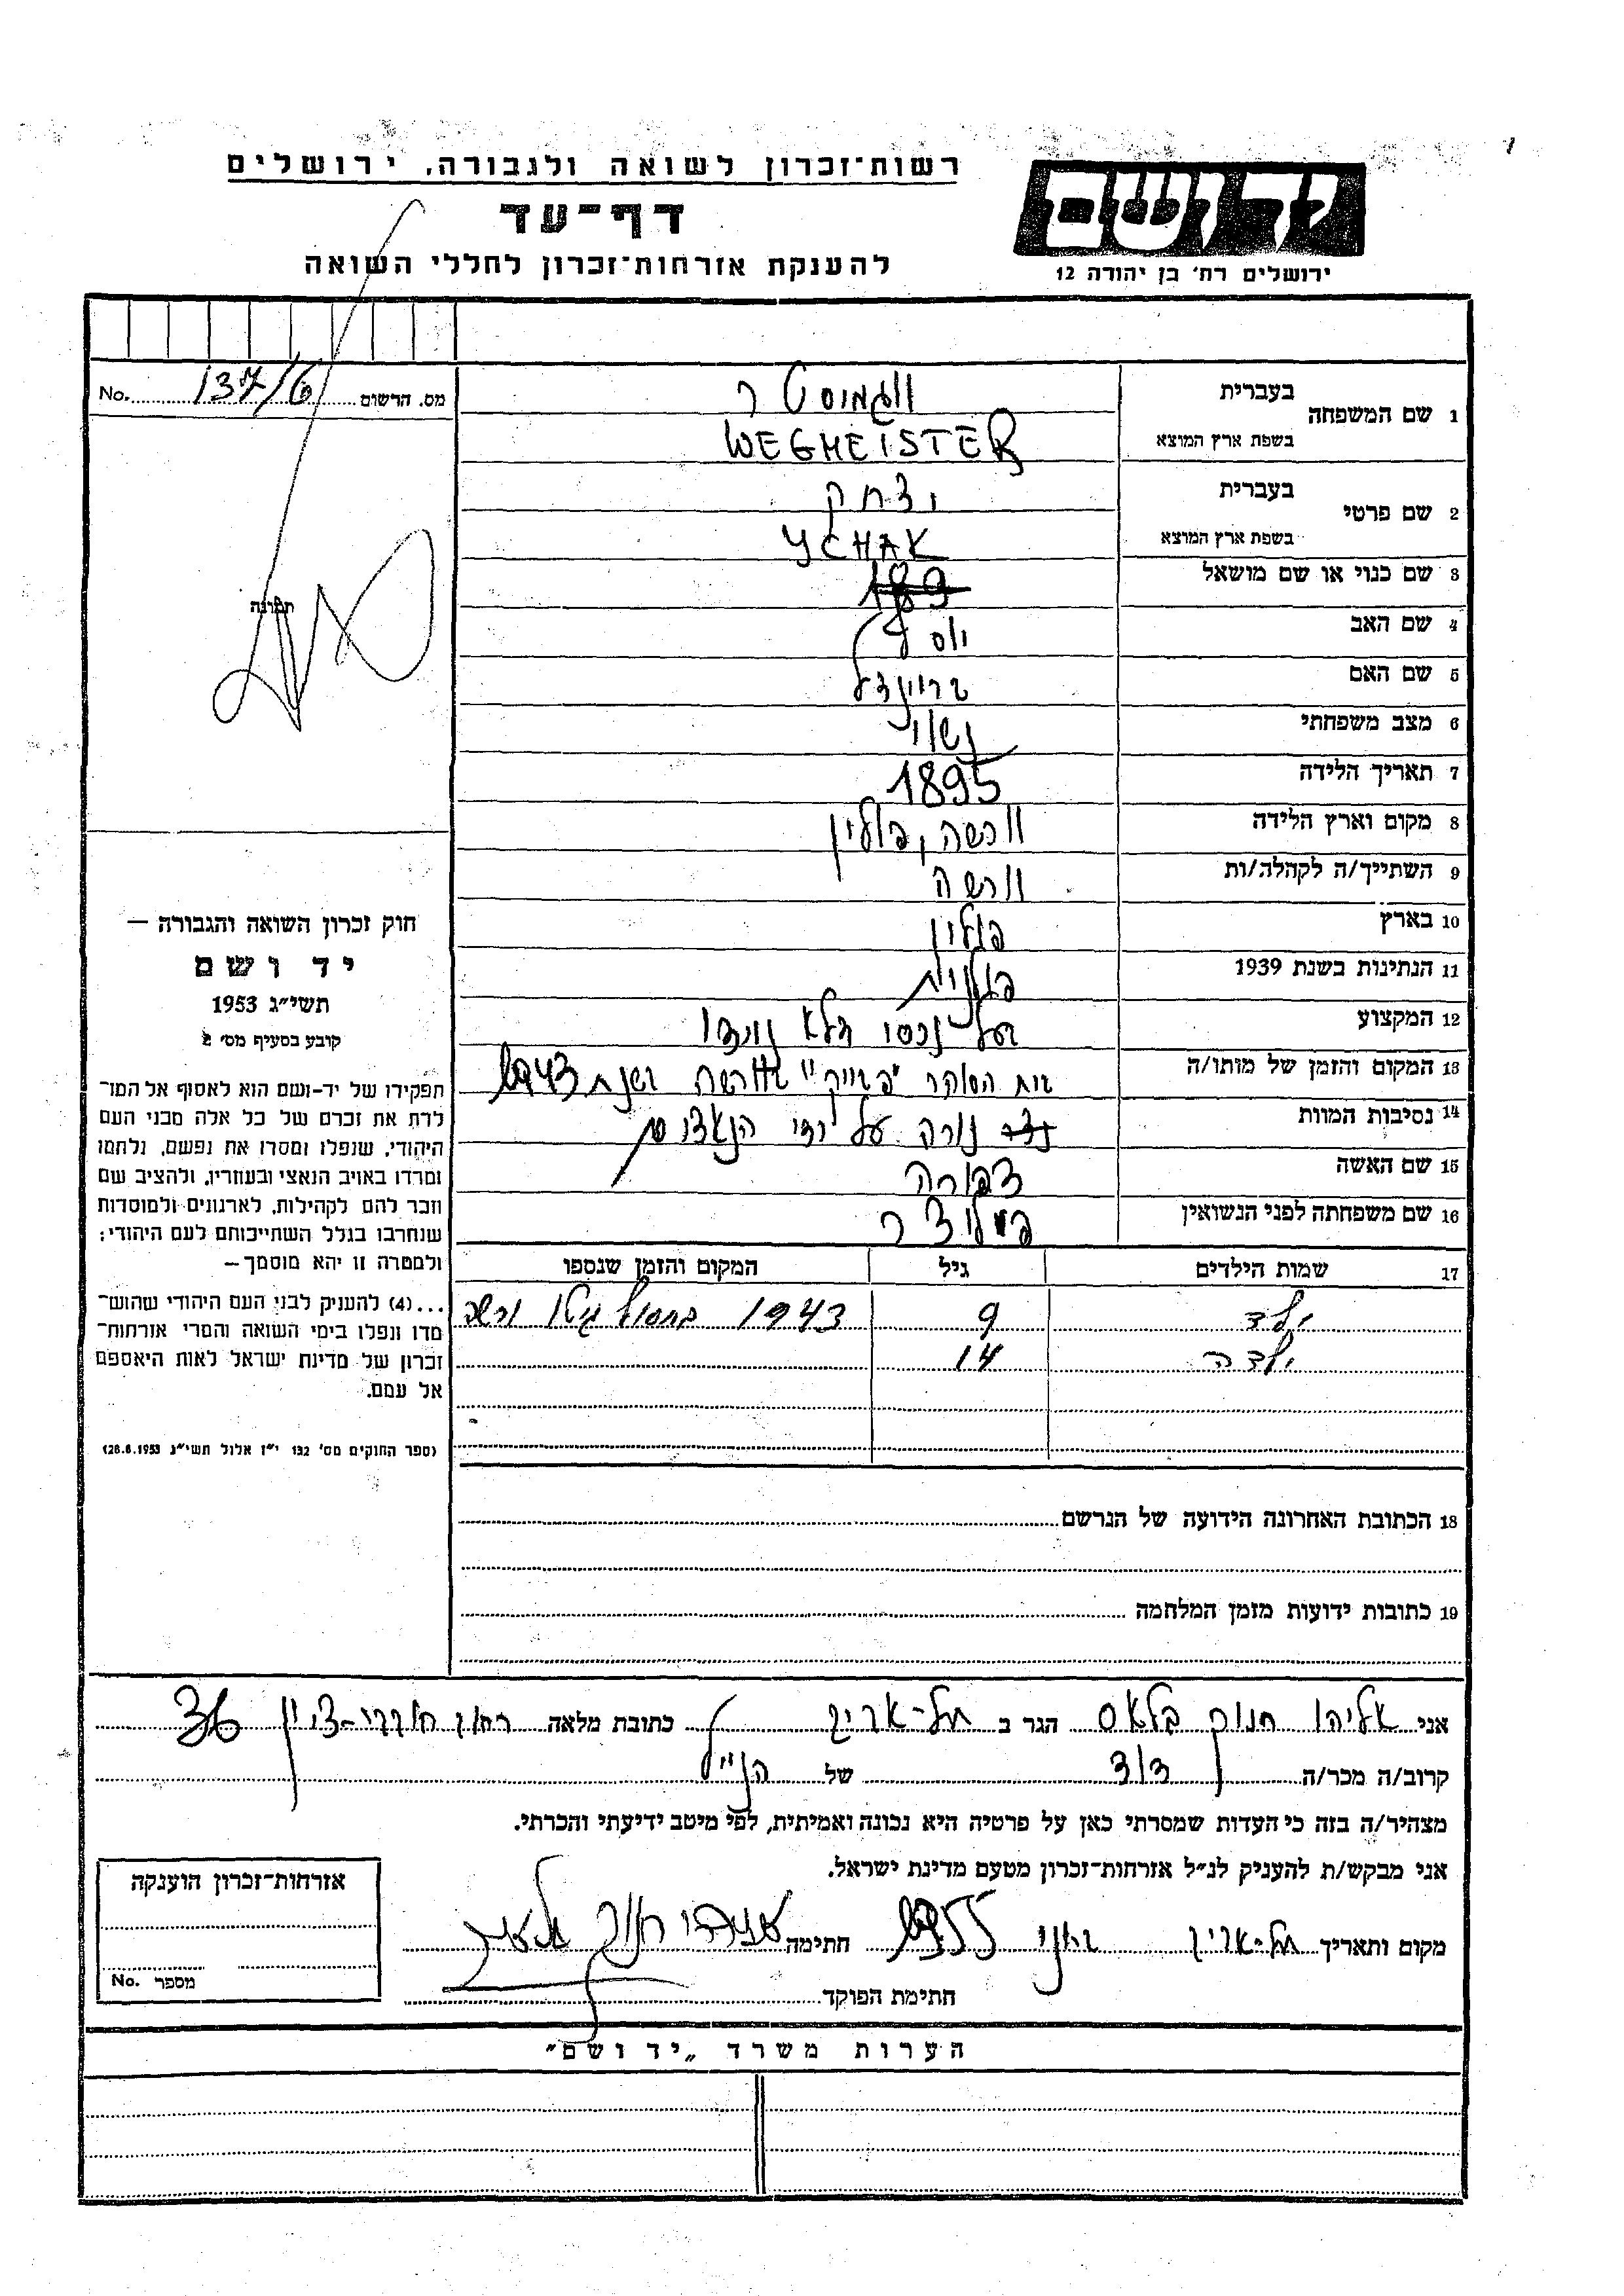 רשות־זכרון לשואה ולגבורה, ירושלים
דף־עד
להענקת אזרחות־זכרון לחללי השואה
יד ושם
ירושלים רח׳ בן יהודה 12
No. 137/6 מס. הרשום
תמונה
1 שם המשפחה בעברית
בשפת ארץ המוצא WEGMEISTER
2 שם פרטי בעברית יצחק
בשפת ארץ המוצא YCHAK
3 שם כנוי או שם מושאל 189
4 שם האב יוסף
5 שם האם בריינדל
6 מצב משפחתי נשוי
7 תאריך הלידה 1895
8 מקום וארץ הלידה וורשה, פולין
9 השתייך/ה לקהלה/ות וורשה
10 בארץ פולין
11 הנתינות בשנת 1939 פולנית
12 המקצוע בעל נכסי דלא ניידי
13 המקום והזמן של מותו/ה בית הסוהר בוורשה בשנת 1943
14 נסיבות המוות נורה על ידי הנאצים
15 שם האשה צפורה
16 שם משפחתה לפני הנשואין
17 שמות הילדים גיל המקום והזמן שנספו
ילד 9 1943 בחסול גיטו ורשה
ילדה 14
18 הכתובת האחרונה הידועה של הנרשם
19 כתובות ידועות מזמן המלחמה
חוק זכרון השואה והגבורה —
יד ושם
תשי״ג 1953
קובע בסעיף מס׳ 2
תפקידו של יד-ושם הוא לאסוף אל המו־
לדת את זכרם של כל אלה מבני העם
היהודי, שנפלו ומסרו את נפשם, נלחמו
ומרדו באויב הנאצי ובעוזריו, ולהציב שם
וזכר להם לקהילות, לארגונים ולמוסדות
שנחרבו בגלל השתייכותם לעם היהודי;
ולמטרה זו יהא מוסמך —
...(4) להעניק לבני העם היהודי שהוש־
מדו ונפלו בימי השואה והמרי אזרחות־
זכרון של מדינת ישראל לאות היאספם
אל עמם.
(ספר החוקים מס׳ 132 י״ז אלול תשי״ג 28.8.1953)
אני אליהו חנוך בלאס הגר ב תל-אביב כתובת מלאה רחוב חובבי-ציון 36
קרוב/ה מכר/ה דוד של הנ״ל
מצהיר/ה בזה כי העדות שמסרתי כאן על פרטיה היא נכונה ואמיתית, לפי מיטב ידיעתי והכרתי.
אני מבקש/ת להעניק לנ״ל אזרחות־זכרון מטעם מדינת ישראל.
מקום ותאריך תל-אביב יוני 1955 חתימה
חתימת הפוקד
אזרחות־זכרון הוענקה
מספר No.
הערות משרד „יד ושם"